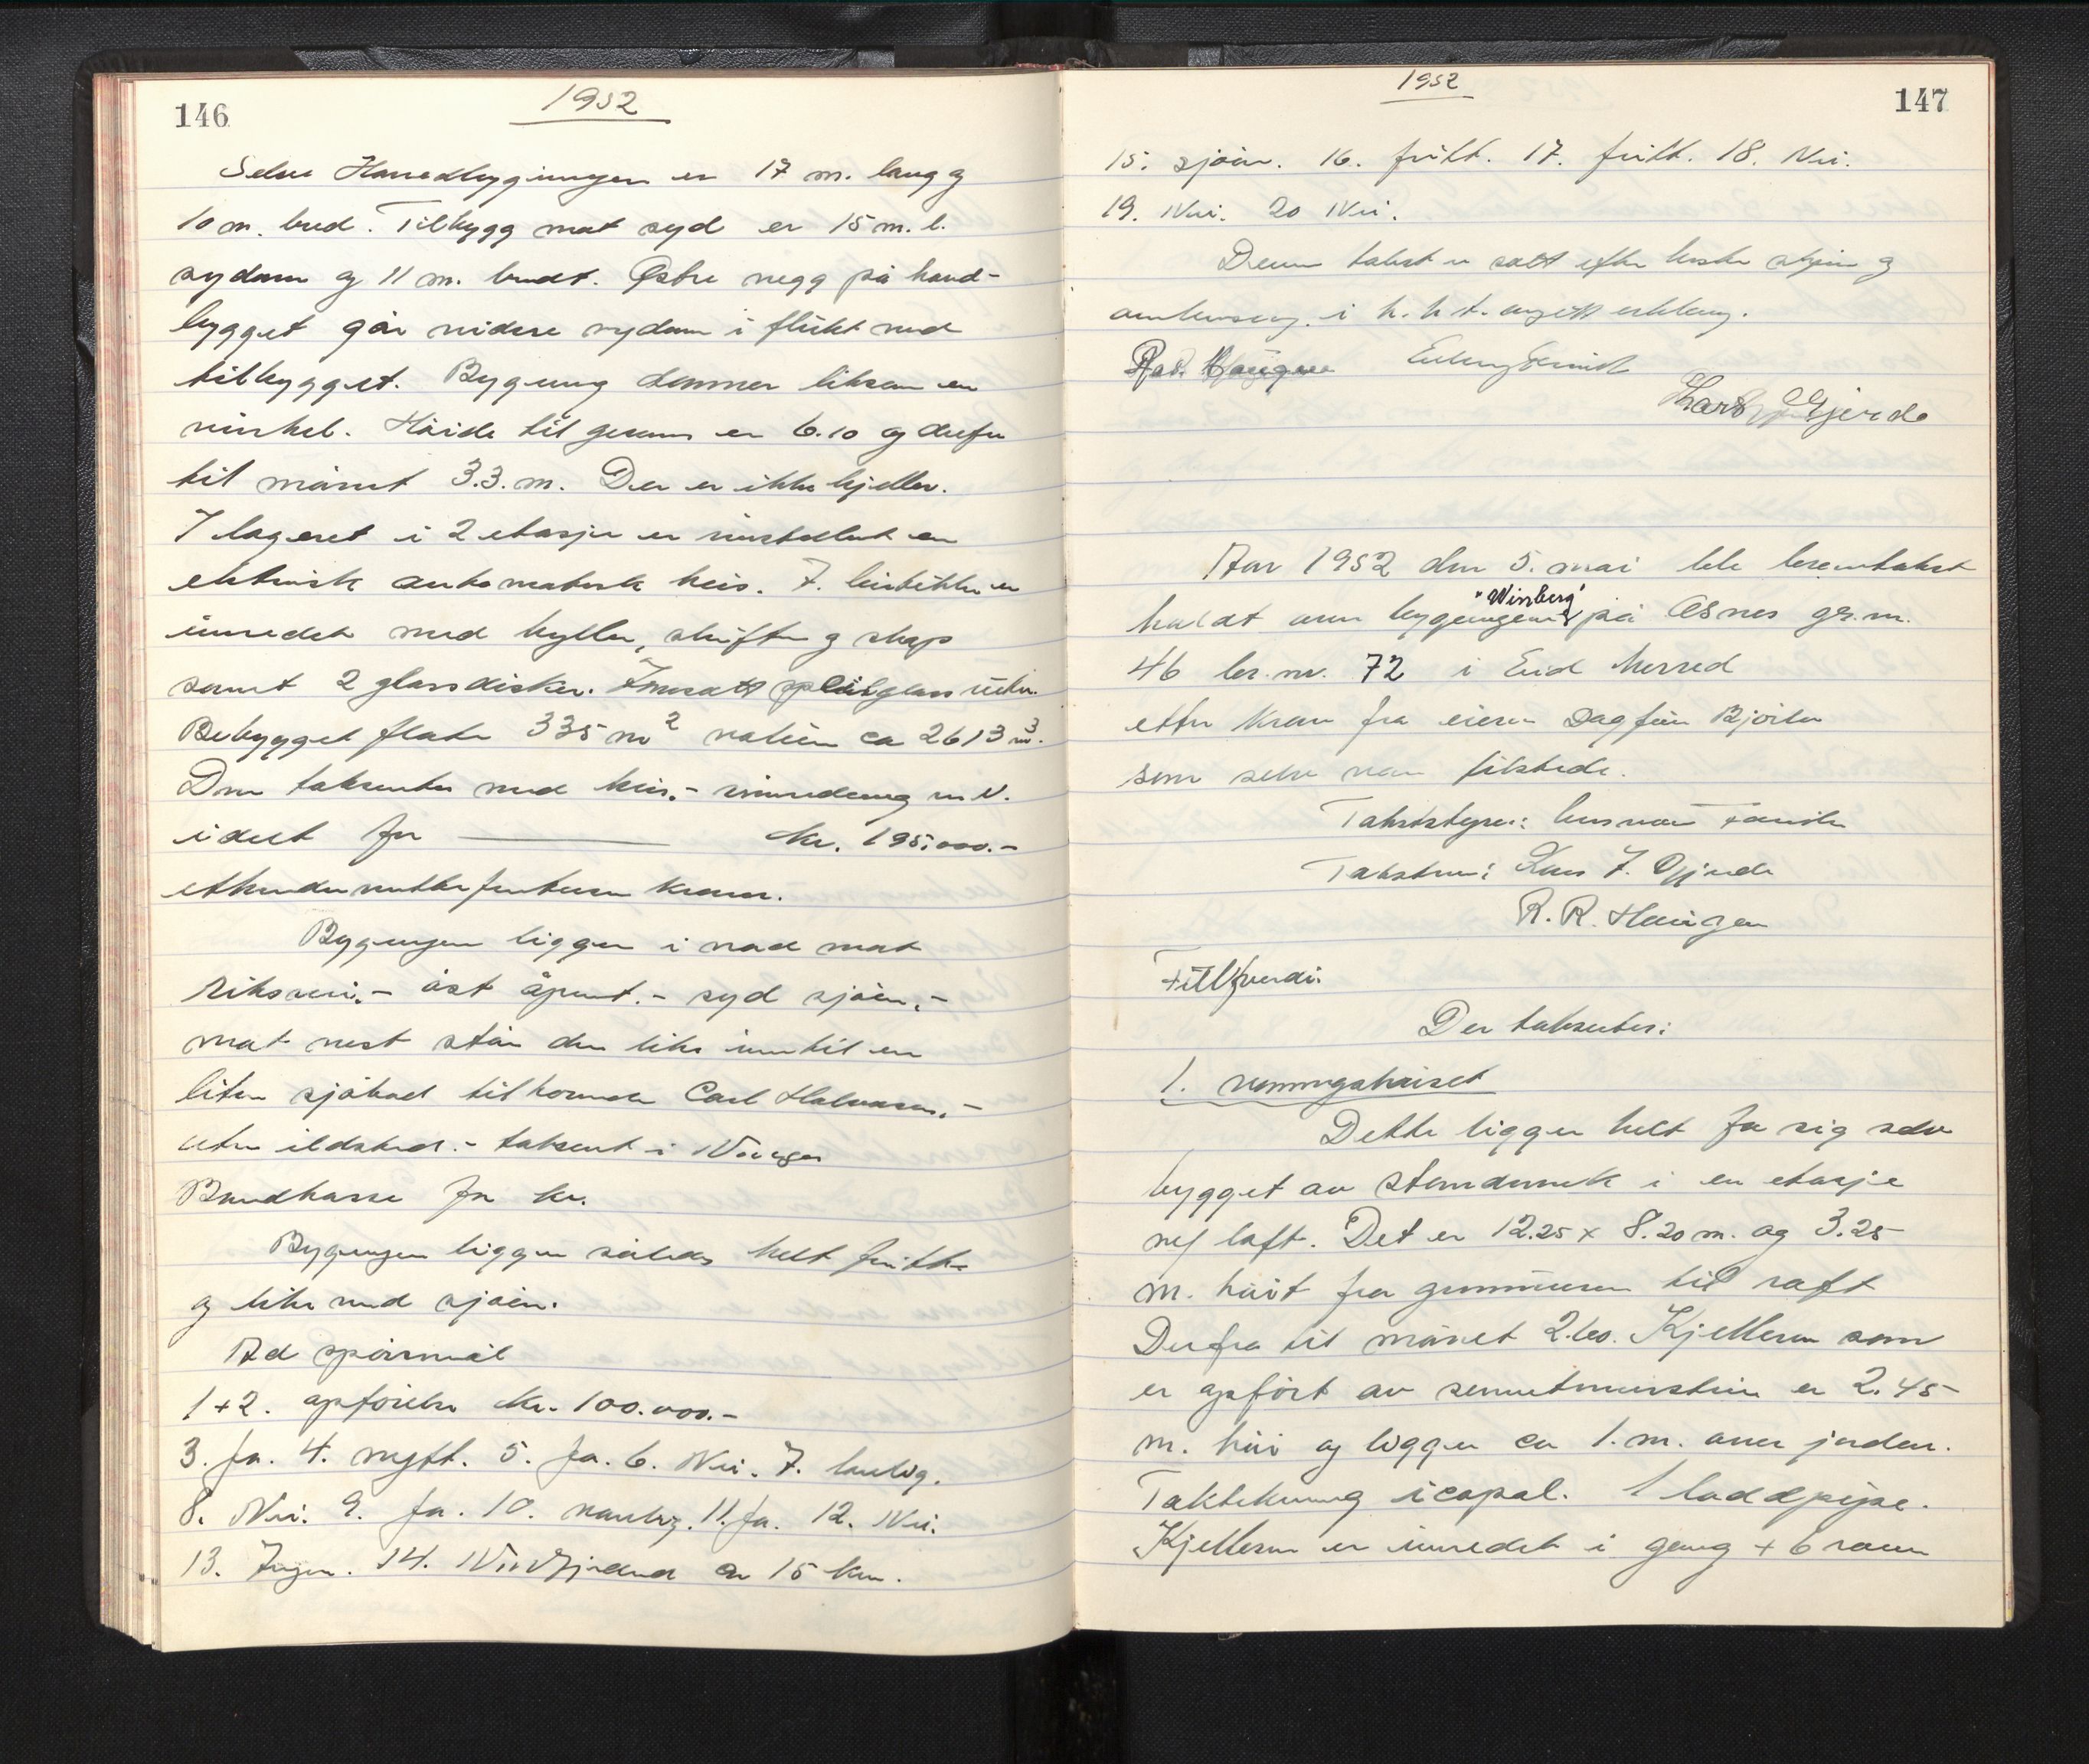 146
1952
Selve Hovedbygningen er 17 m. lang og
10 m. bred. Tilbygg mot syd er 15 m. l.
sydover og 11 m. bredt. Østre vegg på hoved-
bygget går videre sydover i flukt med
tilbygget. Bygning danner liksom en
vinkel. Höide til gesims er 6.10 og derfra
til mönet 3.3. m. Der er ikke kjeller.
I lageret i 2 etasje er installert en
elektrisk automatisk heis. I butikken er
innredet med hyller, skuffer og skap
samt 2 glassdisker. Innsatt speilglass
Bebygget flate 335 m2 volum ca 2613 m3.
Den takseres med heis.- innredning m.v.
i det for kr. 195.000.-
etthundreognittifemtusen kroner.
Bygningen ligger i nord mot
Riksvei.- öst åpent.- syd sjöen.-
mot vest står den like inntil en
liten sjöbod tilhörende Carl Halvorsen.-
uten ildsted.- taksert i Norges
Brandkasse for kr.
Bygningen ligger således helt fritt
og like ved sjöen.
Ad spörsmål
1+2. opförelse kr. 100.000.-
3. Ja. 4. nytt. 5. Ja. 6. Nei. 7. lovlig.
8. Nei. 9. Ja. 10. vanlig. 11. Ja. 12. Nei.
13. Ingen. 14. Nordfjordeid ca 15 km.
1952
147
15. sjöen. 16. fritt. 17. fritt. 18. Nei.
19. Nei. 20 Nei.
Denne takst er satt efter beste skjön og
overbevisning i h. h. t. avgitt erklæring.
Lars Gjerde
Aar 1952 den 5. mai ble branntakst
holdt over bygningene "Winberg" på Osnes gr. nr.
46 br. nr. 72 i Eid herred
etter krav fra eieren Dagfinn Björlo
som selv var tilstede.
Takststyrer: lensmann
Takstmenn: Lars J. Gjerde
R. R. Haugen
Fullverdi:
Der takseres:
1. vaningshuset
Dette ligger helt for sig selv
bygget av stenderverk i en etasje
m/ loft. Det er 12.25 x 8.20 m. og 3.25
m. höit fra grunnmuren til raft
Derfra til mönet 2.60. Kjelleren som
er opfört av sementmurstein er 2.45
m. höi og ligger ca 1. m. over jorden.
Taktekning icopal. 1 loddpipe.
Kjelleren er innredet i gang + 6 rom